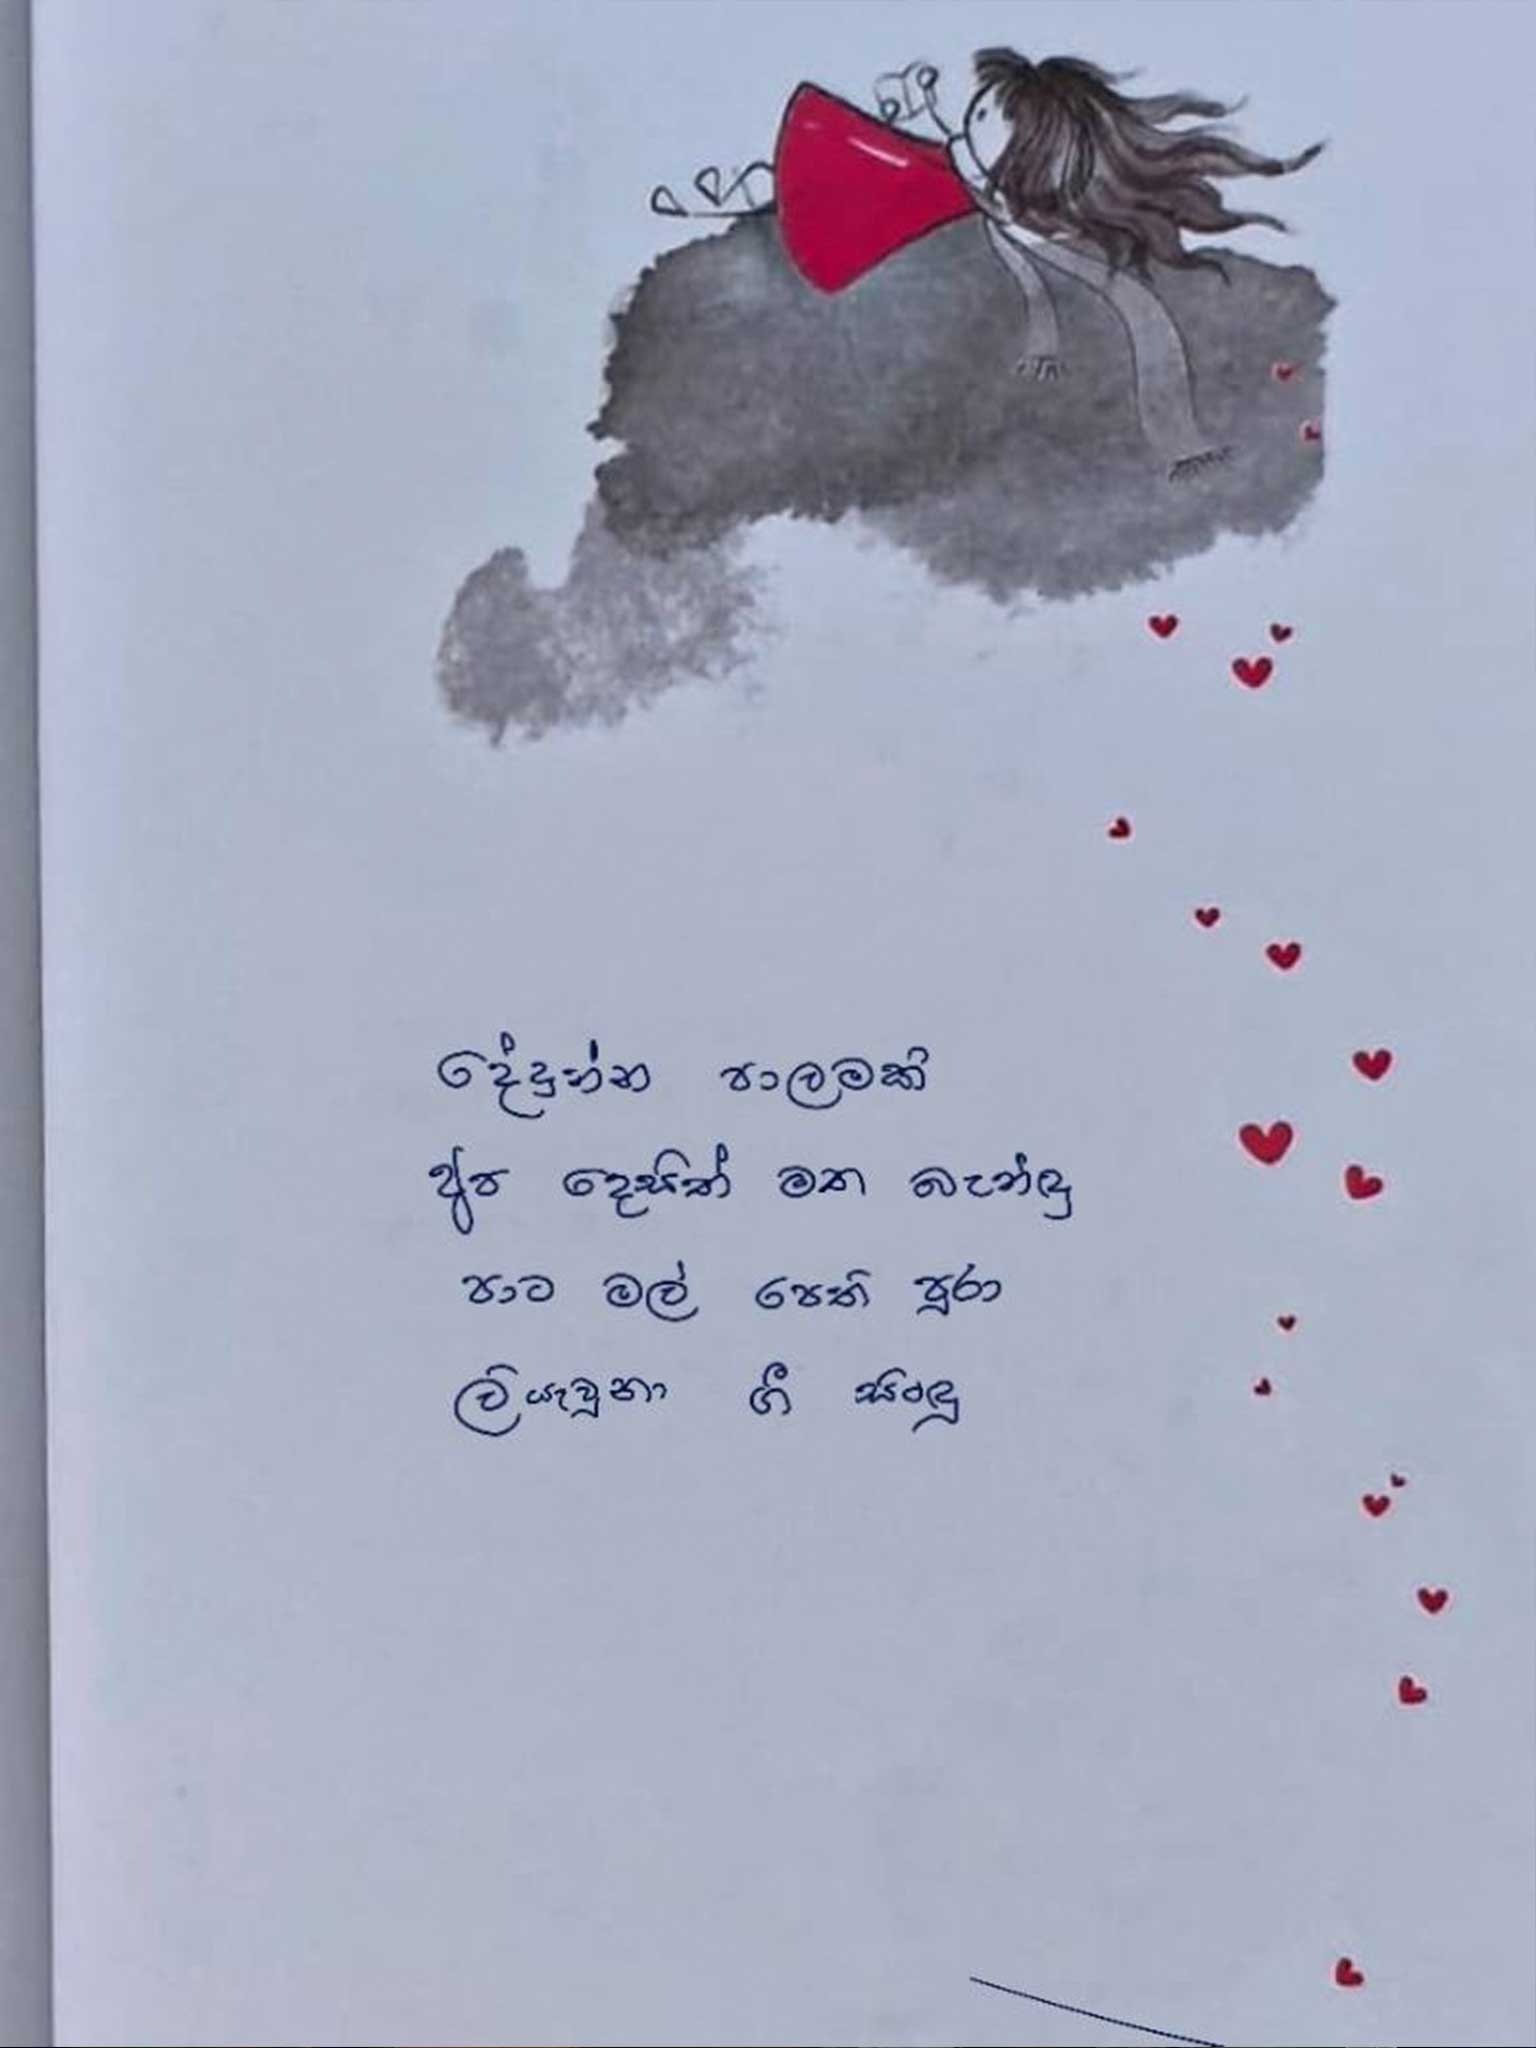 දේදුන්න පාලමකි
අප දෙසිත් මත බැන්ඳු
පාට මල් පෙති පුරා
ලියැවුනා ගී සිංදු